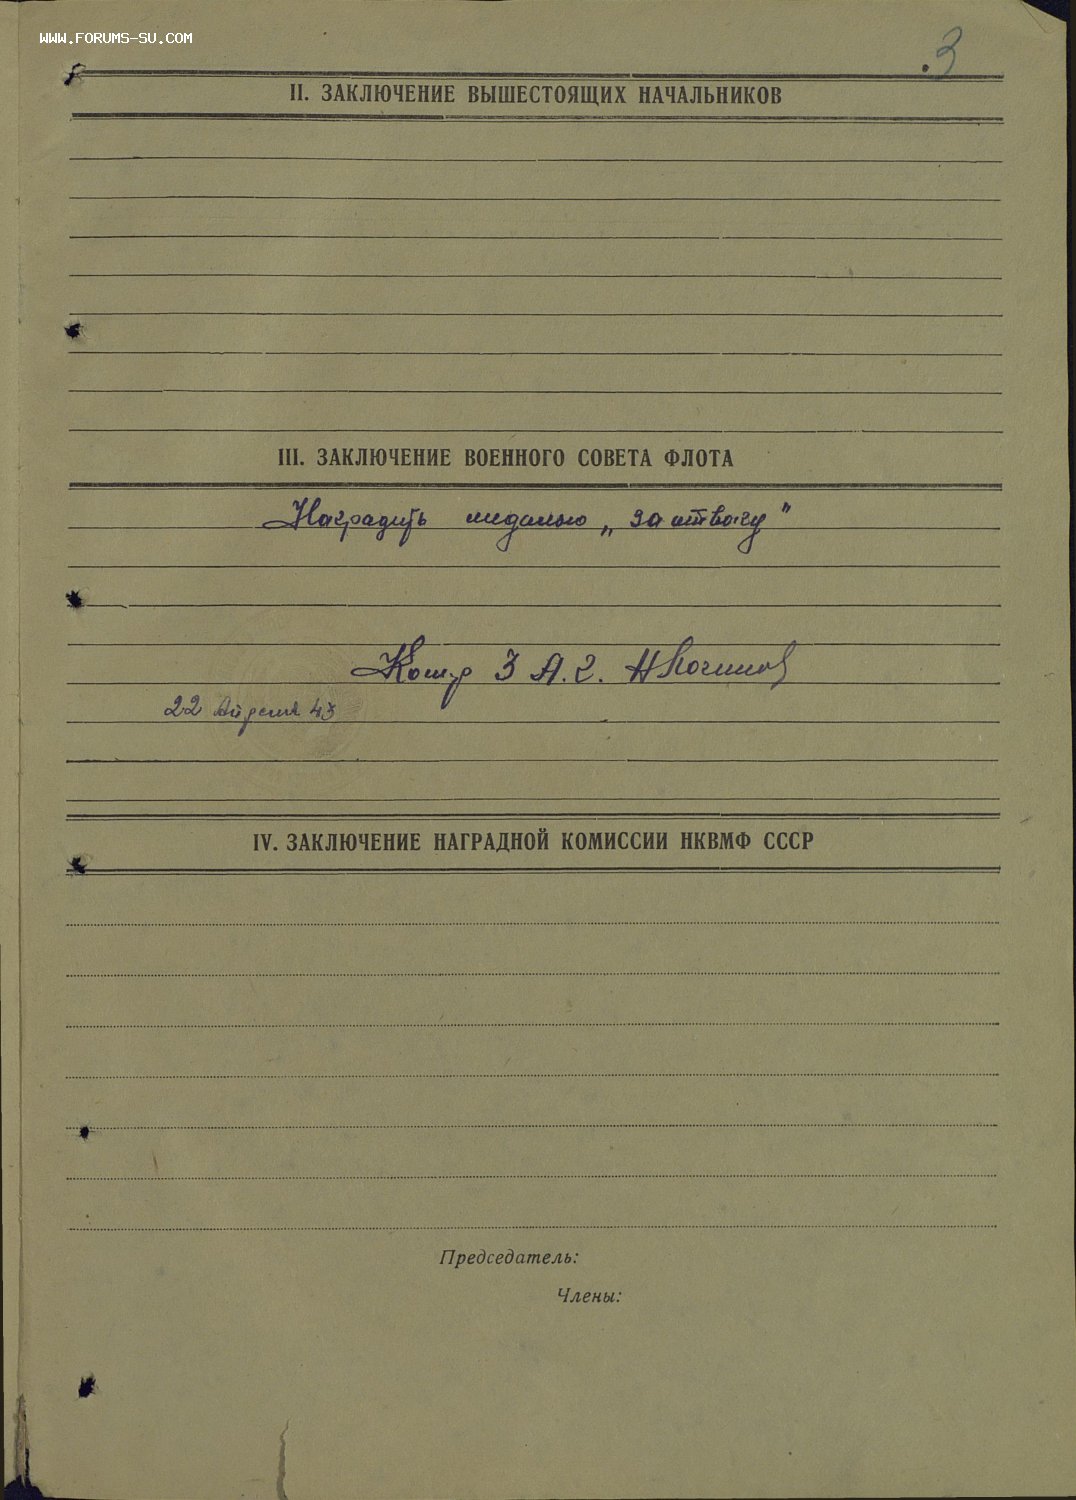 WWW.FORUMS-SU.COM
3
II. ЗАКЛЮЧЕНИЕ ВЫШЕСТОЯЩИХ НАЧАЛЬНИКОВ
III. ЗАКЛЮЧЕНИЕ ВОЕННОГО СОВЕТА ФЛОТА
Наградить медалью „за отвагу"
3 А.2.
22 Апреля 43
IV. ЗАКЛЮЧЕНИЕ НАГРАДНОЙ КОМИССИИ НКВМФ СССР
Председатель:
Члены: